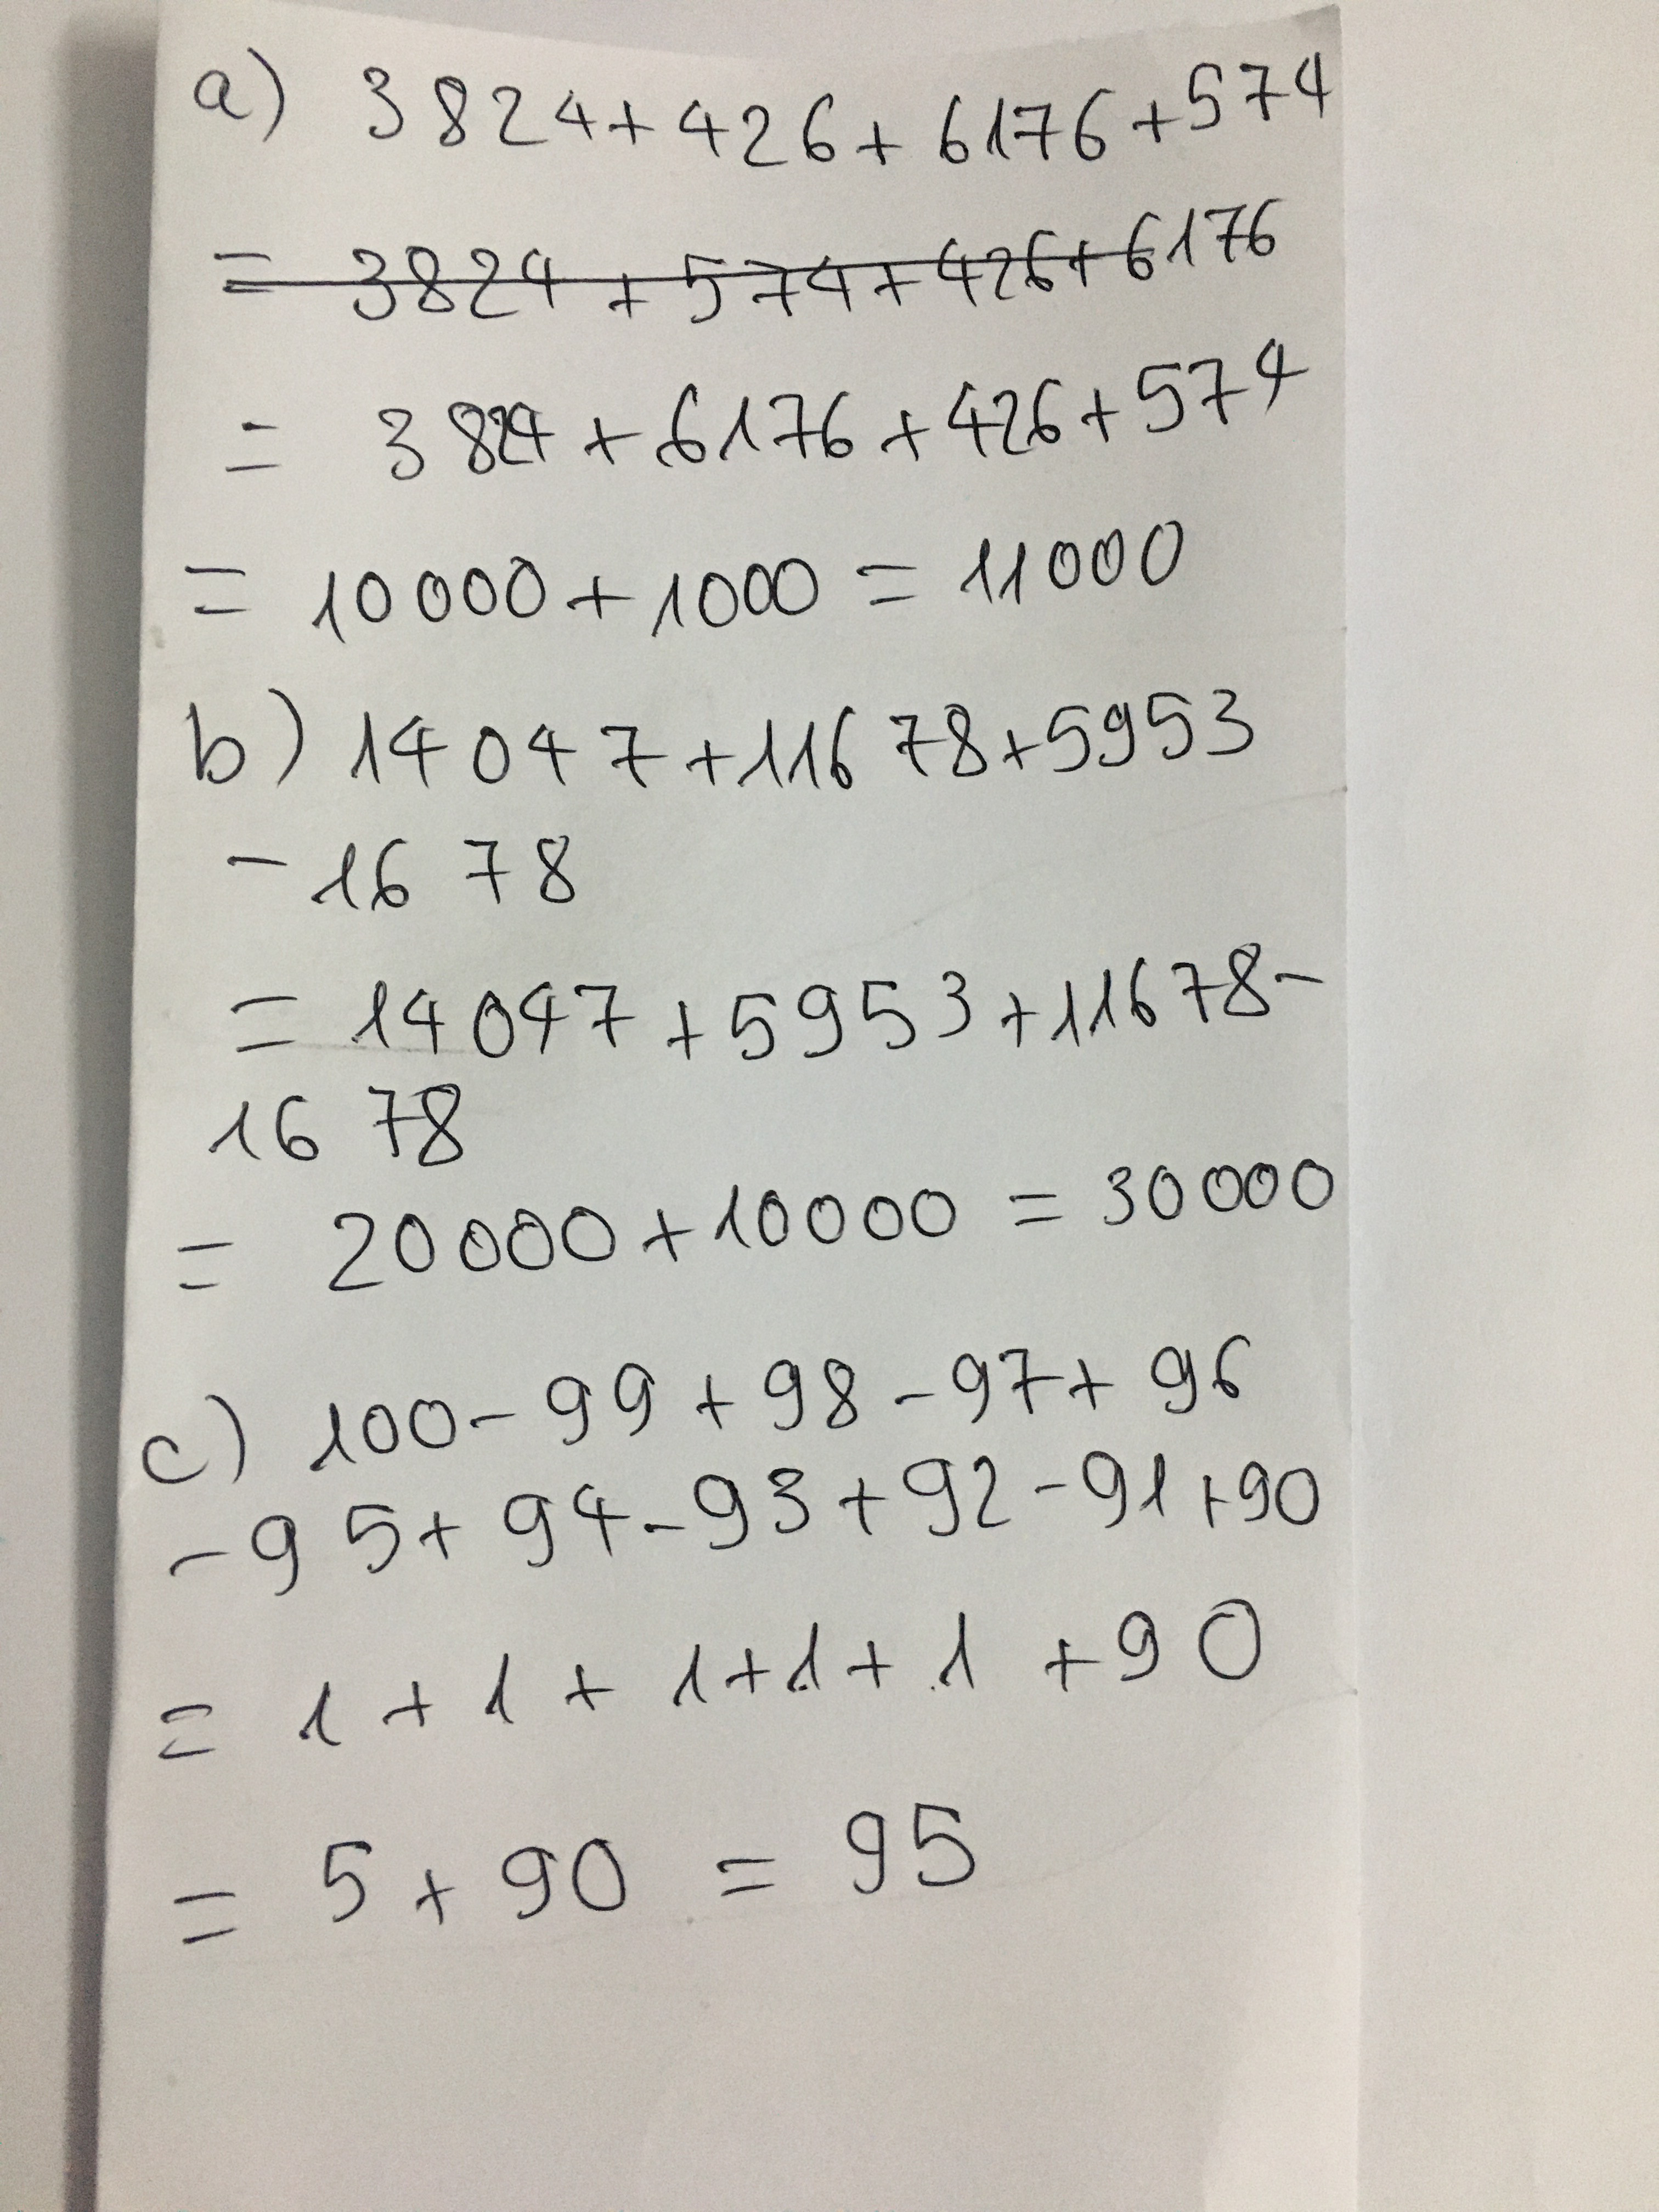 a) 3824+426+6176+574
= 3824+574+426+6176
= 3824+6176+426+574
= 10000+1000=11000
b) 14047+11678+5953
-1678
= 14047+5953+11678-
1678
= 20000+10000=30000
c) 100-99+98-97+96
-95+94-93+92-91+90
= 1+1+1+1+1+90
= 5+90=95